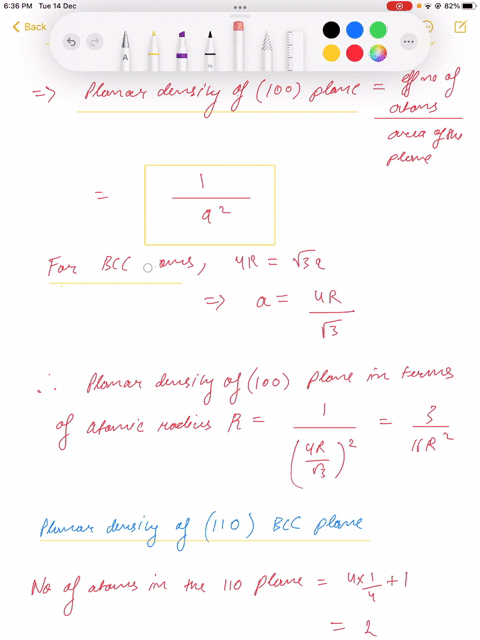 6:36 PM Tue 14 Dec
82%
Back
A
=> Planar density of (100) plane = eff no of atoms / area of the plane
= 1 / a²
For BCC ams, 4R = √3a
=> a = 4R / √3
∴ Planar density of (100) plane in terms
of atomic radius R = 1 / (4R/√3)² = 3 / 16R²
Planar density of (110) BCC plane
No of atoms in the 110 plane = 4x1/4 + 1
= 2